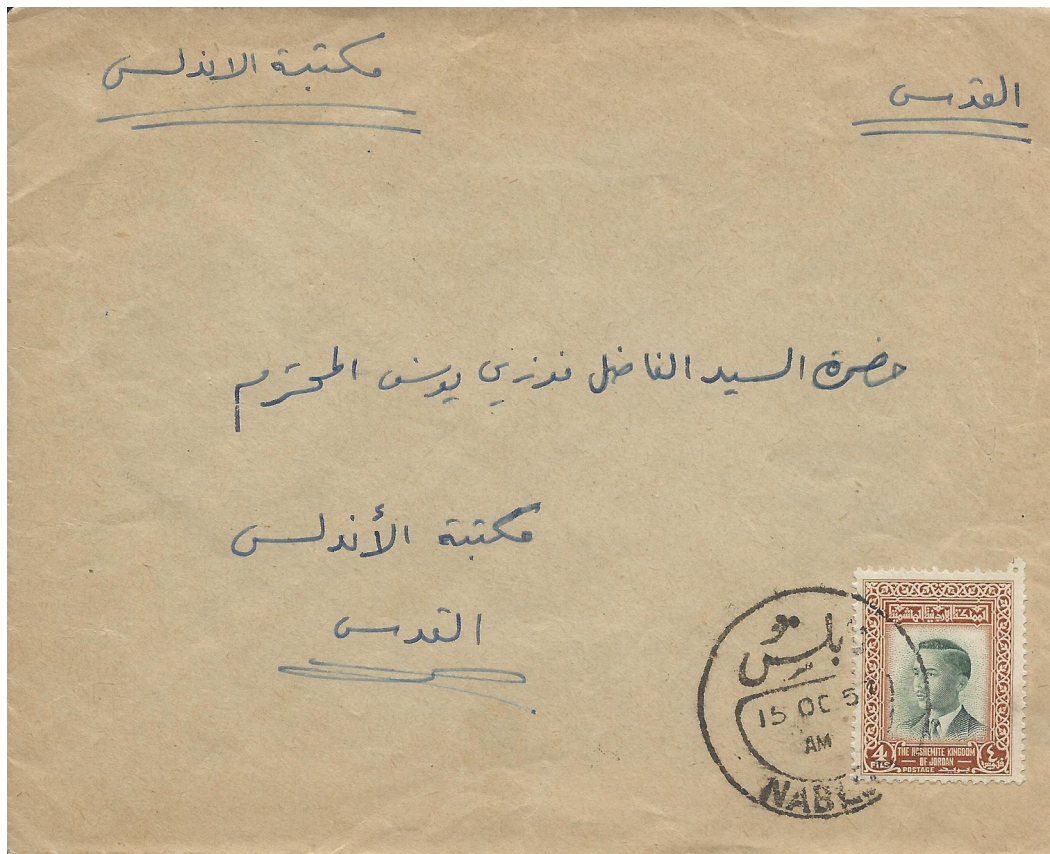 القدس
مكتبة الاندلس
حضرة السيد الفاضل فوزي يوسف المحترم
مكتبة الأندلس
القدس
نابلس
15 OC 5
AM
NABL
المملكة الاردنية الهاشمية
4 FILS
THE HASHEMITE KINGDOM OF JORDAN
POSTAGE بريد
٤ فلس